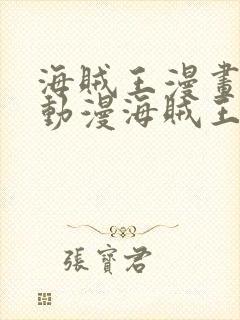 海賊王漫畫
動漫海賊王
張寶君